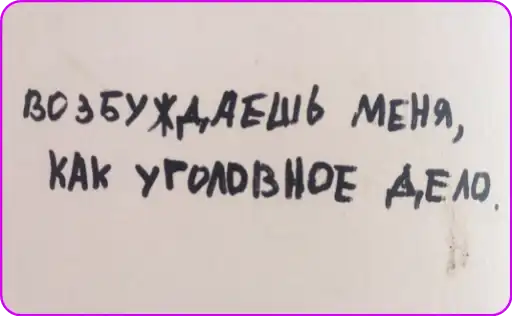 ВОЗБУЖДАЕШЬ МЕНЯ,
КАК УГОЛОВНОЕ ДЕЛО.